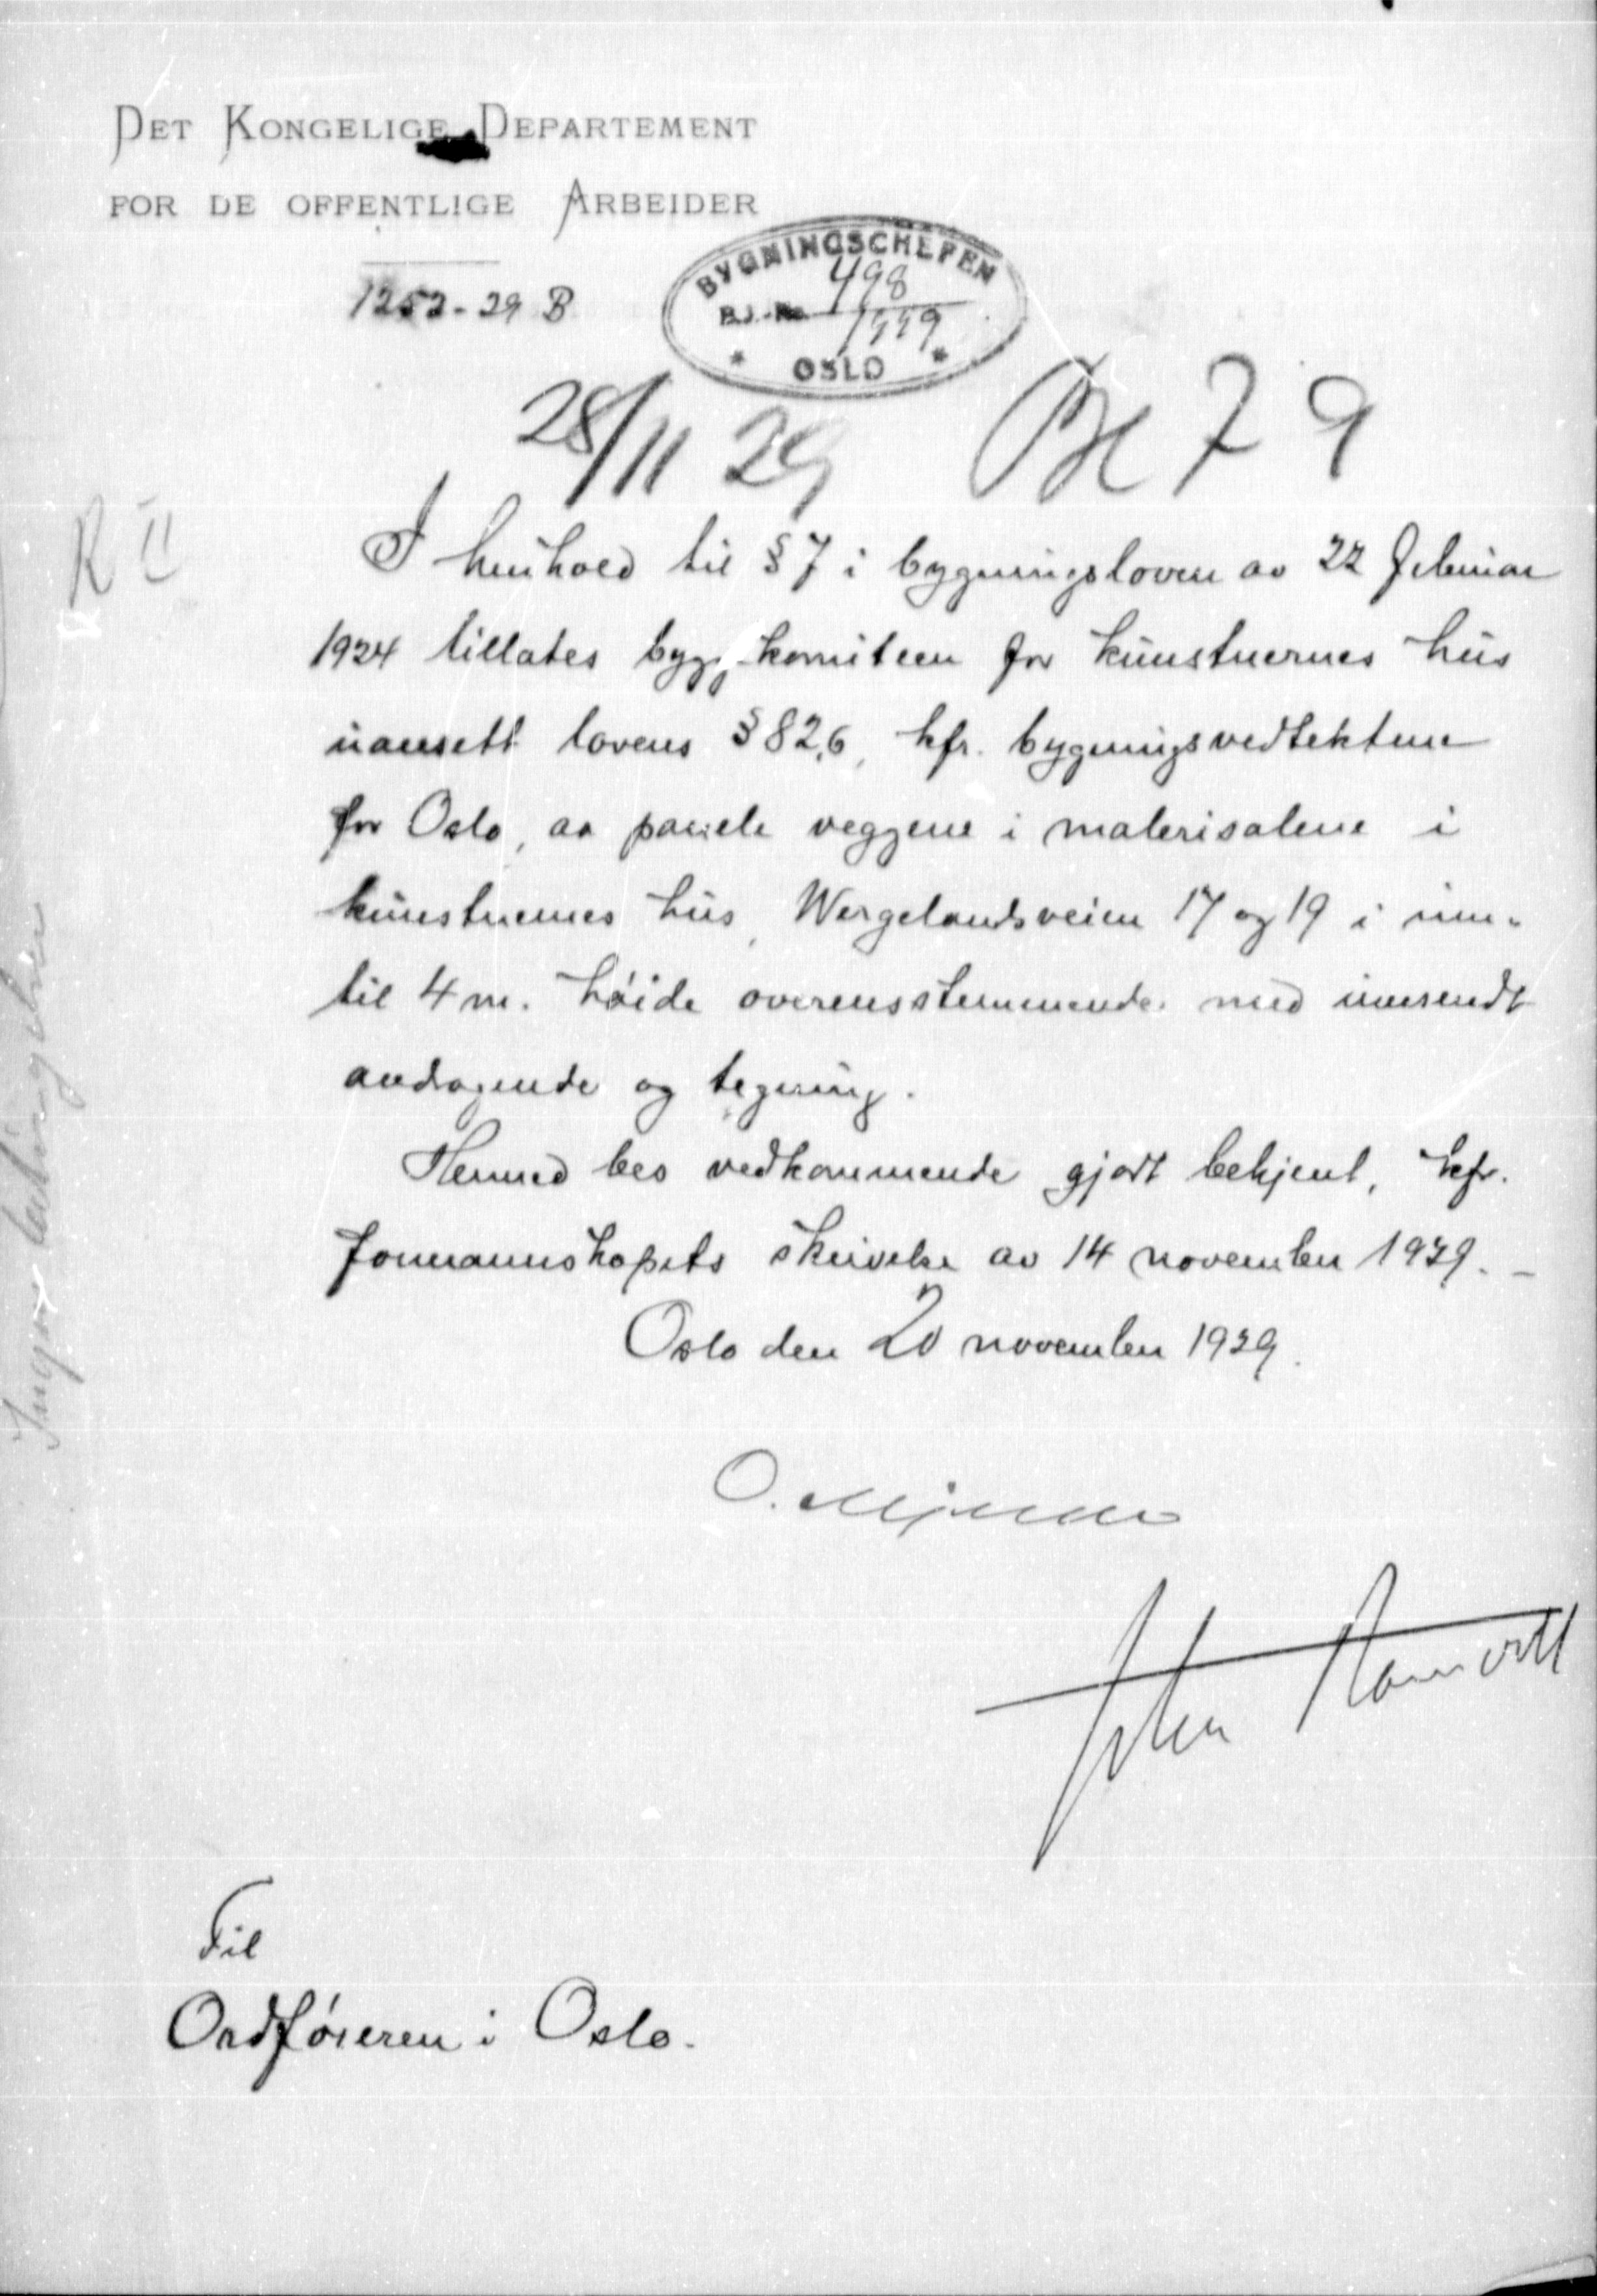 DET KONGELIGE DEPARTEMENT
FOR DE OFFENTLIGE ARBEIDER
1252-29 B
BYGNINGSCHEFEN
B.J.-No. 498
1929
* OSLO *
28/11 29
79
R II
I henhold til § 7 i bygningsloven av 22 februar
1924 tillates byggekomiteen for kunstnernes hus
uansett lovens § 82,6, kfr. bygningsvedtektene
for Oslo, aa panele veggene i malerisalene i
kunstnernes hus, Wergelandsveien 17 og 19 i inn-
til 4 m. høide overensstemmende med innsendt
andragende og tegning.
Hermed bes vedkommende gjort bekjent, kfr.
formannskapets skrivelse av 14 november 1929. –
Oslo den 20 november 1929.
O.
Til
Ordføreren i Oslo.